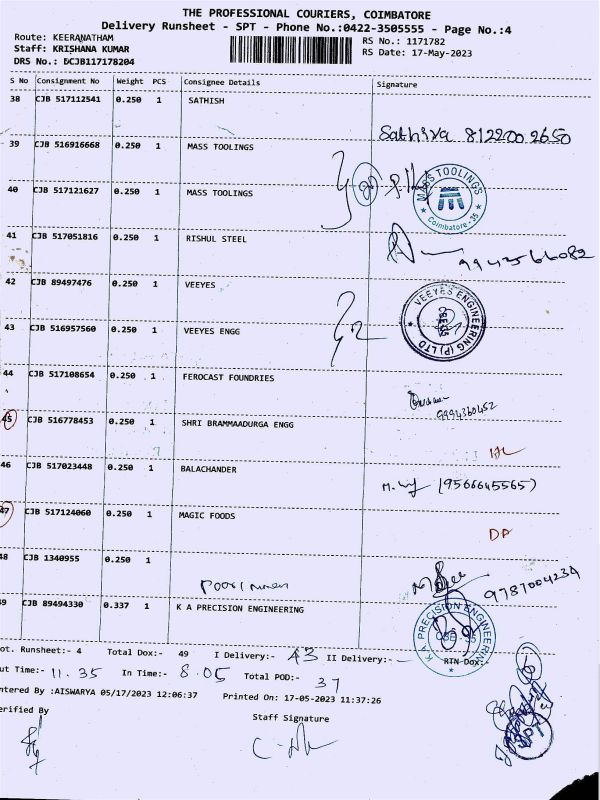 THE PROFESSIONAL COURIERS, COIMBATORE
Delivery Runsheet - SPT - Phone No.:0422-3505555 - Page No.:4
Route: KEERANATHAM
Staff: KRISHANA KUMAR
DRS No.: DCJB117178204
RS No.: 1171782
RS Date: 17-May-2023
S No Consignment No Weight PCS Consignee Details Signature
38 CJB 517112541 0.250 1 SATHISH
Sathiya 8122002650
39 CJB 516916668 0.250 1 MASS TOOLINGS
40 CJB 517121627 0.250 1 MASS TOOLINGS
MASS TOOLINGS
Coimbatore-35
41 CJB 517051816 0.250 1 RISHUL STEEL
9943566082
42 CJB 89497476 0.250 1 VEEYES
43 CJB 516957560 0.250 1 VEEYES ENGG
VEEYES ENGINEERING (P) LTD
44 CJB 517108654 0.250 1 FEROCAST FOUNDRIES
9994360452
45 CJB 516778453 0.250 1 SHRI BRAMMAADURGA ENGG
46 CJB 517023448 0.250 1 BALACHANDER
(9566645565)
47 CJB 517124060 0.250 1 MAGIC FOODS
48 CJB 1340955 0.250 1
9787004234
49 CJB 89494330 0.337 1 K A PRECISION ENGINEERING
K A PRECISION ENGINEERING
Tot. Runsheet:- 4 Total Dox:- 49 I Delivery:- 43 II Delivery:- RTN Dox:-
Out Time:- 11.35 In Time:- 8.05 Total POD:- 37
Entered By :AISWARYA 05/17/2023 12:06:37 Printed On: 17-05-2023 11:37:26
Verified By Staff Signature